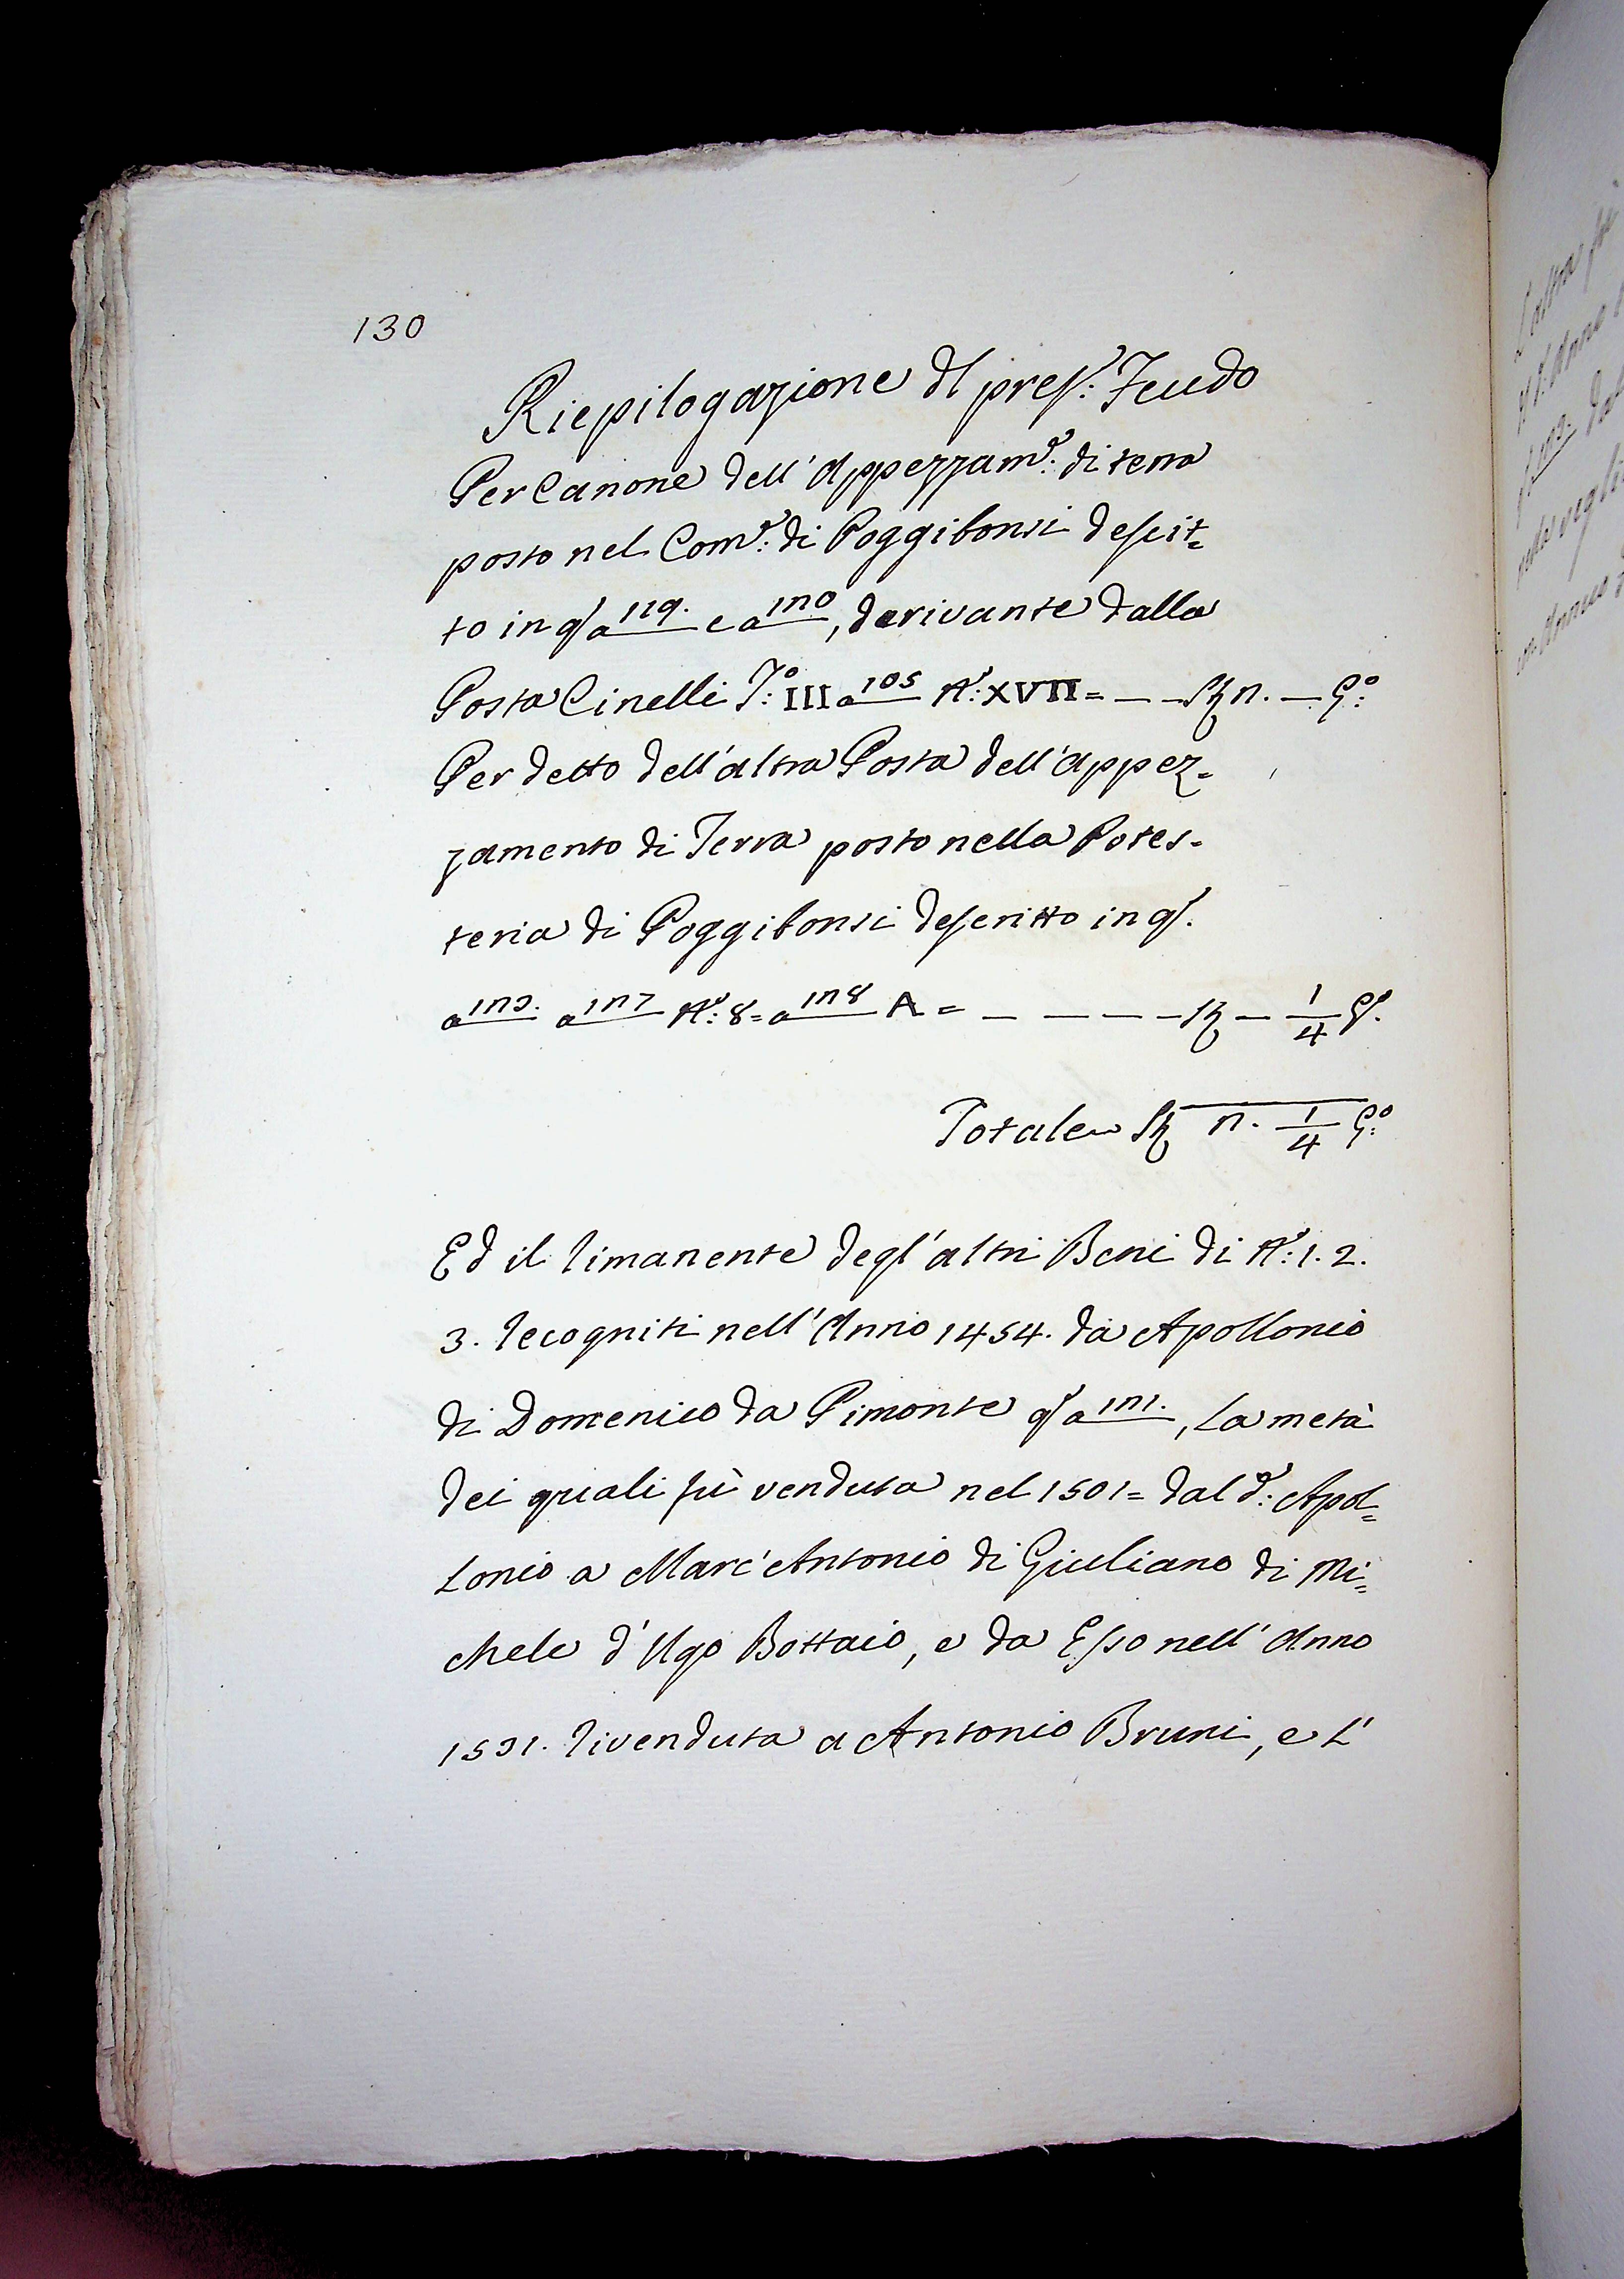 130
Riepilogazione dl pres: Feudo
Per Canone dell'Appezzam:to di terra
posto nel Com:e di Poggibonsi descrit=
to in qs a 129. e a 120, derivante dalla
Posta Cinelli T:o III a 105 N:o XVII = — — St 2. — G:o
Per detto dell'altra Posta dell'appez=
zamento di Terra posto nella Potes=
teria di Poggibonsi descritto in qs.
a 123. a 127 N:o 8 = a 128 A = — — — — — St — 1/4 G.
Totale St 2. 1/4 G:o
Ed il rimanente degl'altri Beni di N:o 1. 2.
3. recogniti nell'Anno 1454. da Apollonio
di Domenico da Pimonte qs a 121., la metà
dei quali fù venduta nel 1501 = dal d:o Apol=
lonio a Marc'Antonio di Giuliano di Mi=
chele d'Ugo Bottaio, e da Esso nell'Anno
1531. rivenduta a Antonio Bruni, e l'